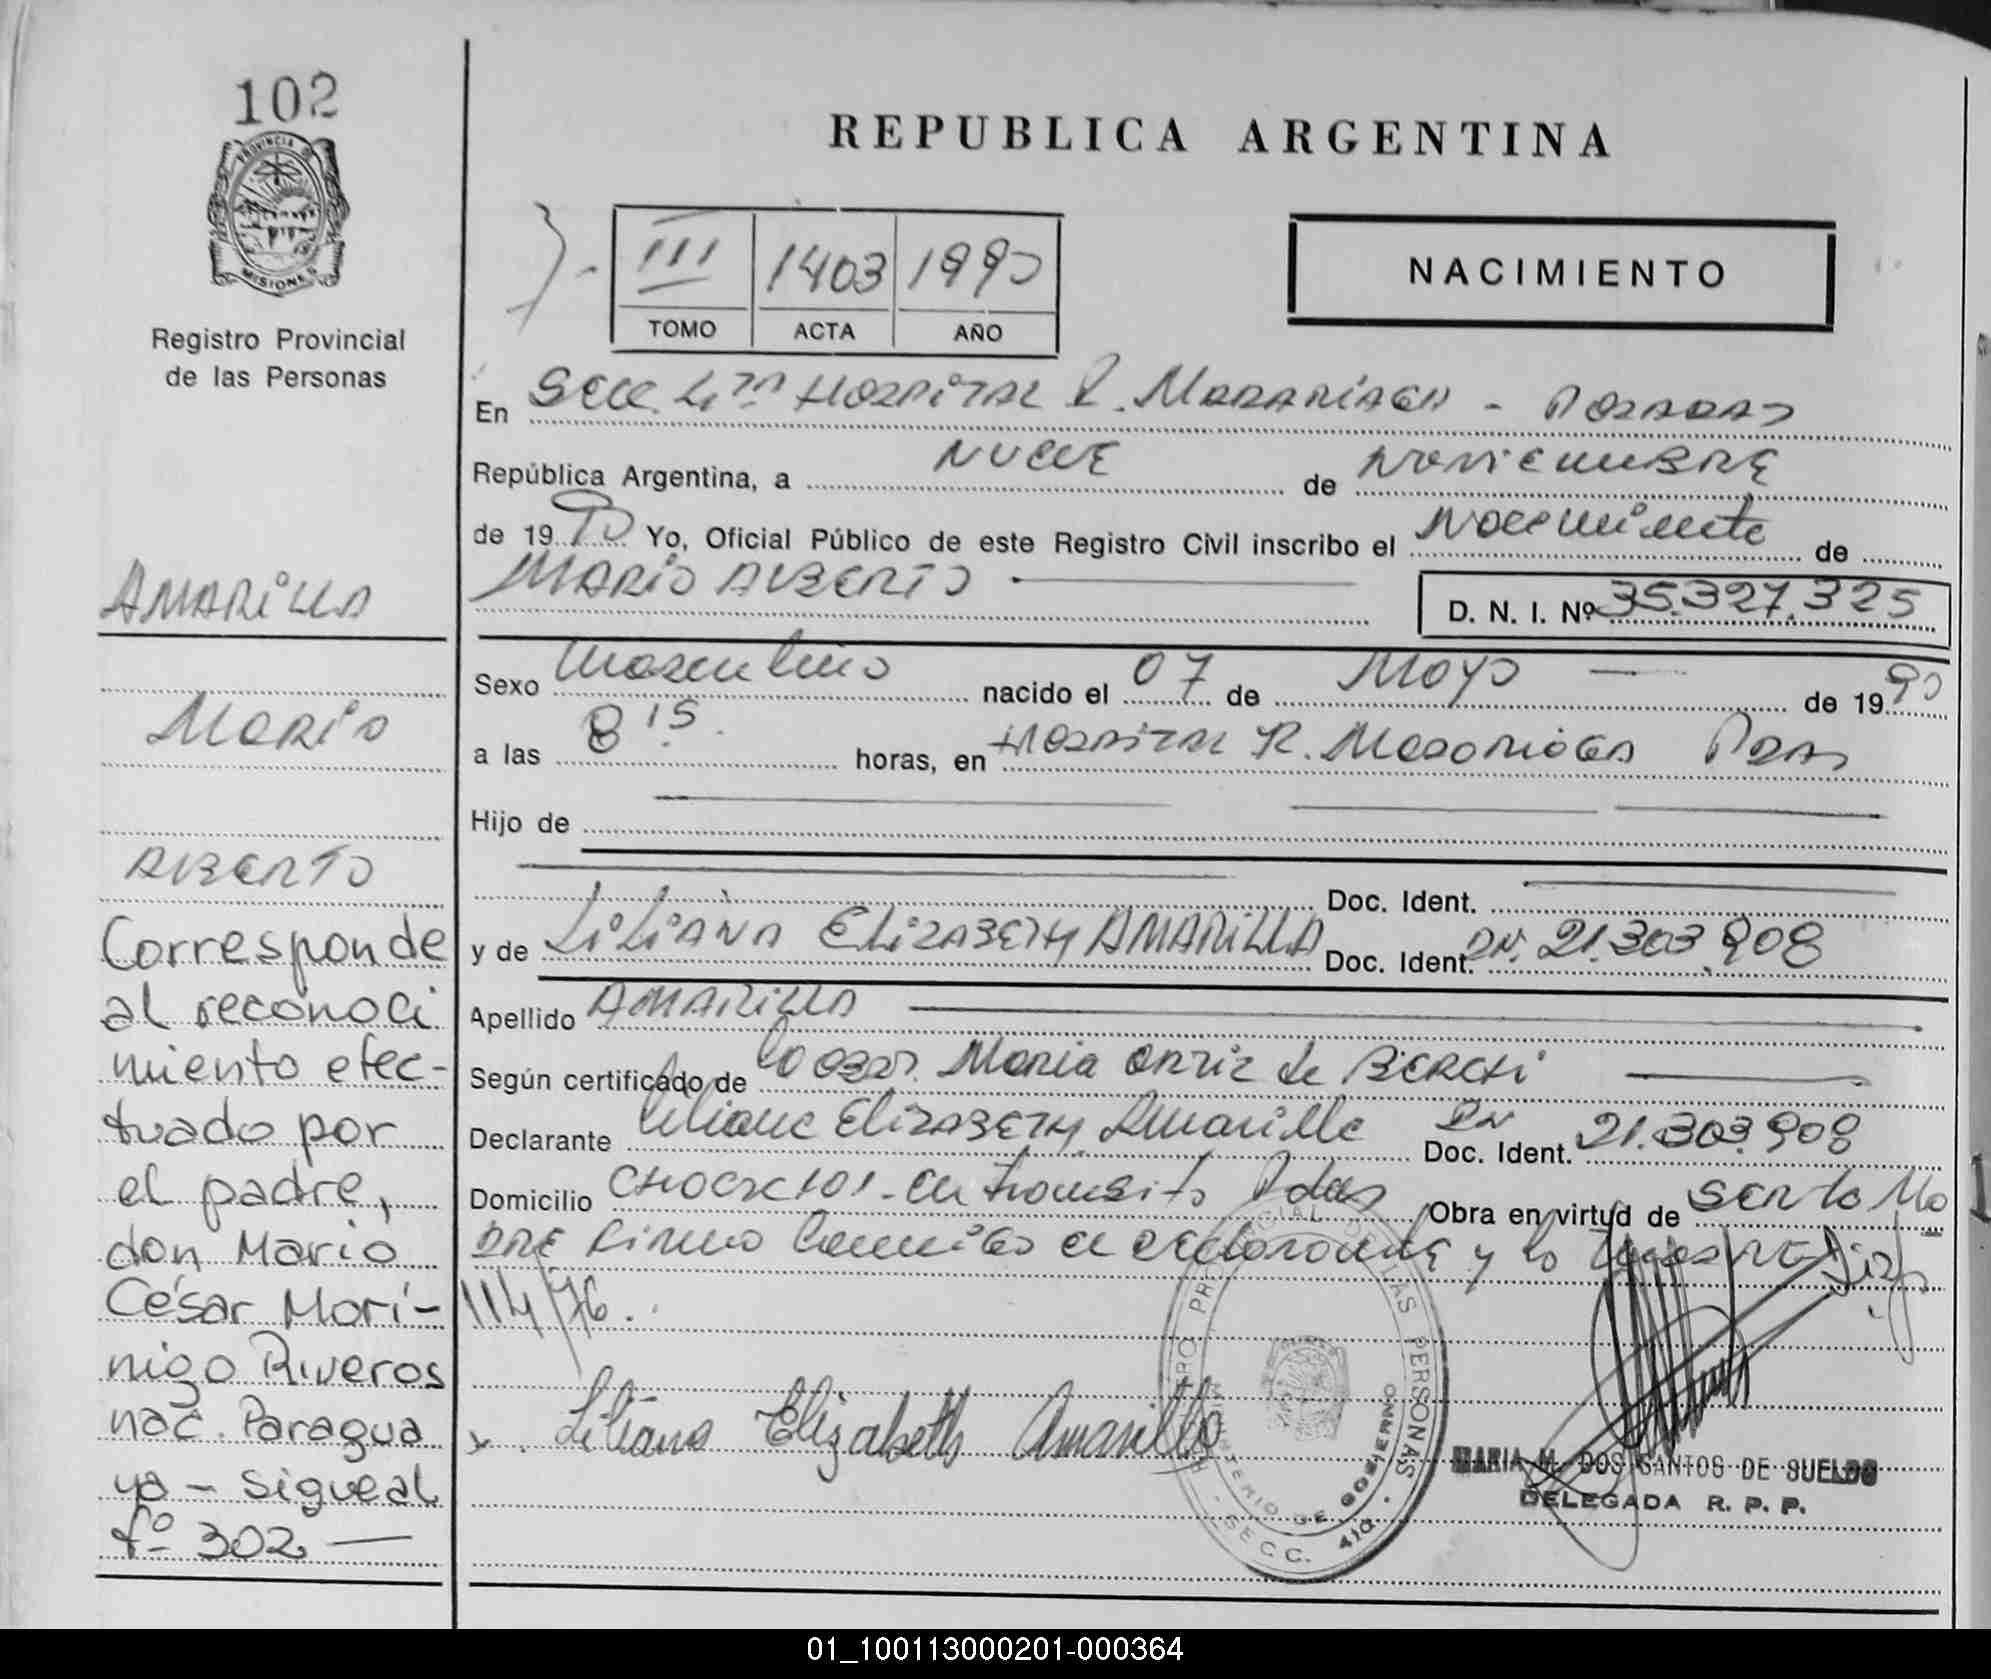 102
PROVINCIA DE
MISIONES
Registro Provincial
de las Personas
REPUBLICA ARGENTINA
III 1403 1990
TOMO ACTA AÑO
NACIMIENTO
En Secc. 4ta Hospital R. Madariaga - Posadas
República Argentina, a NUEVE de NOVIEMBRE
de 1990 Yo, Oficial Público de este Registro Civil inscribo el Nacimiento de
MARIO ALBERTO D. N. I. Nº 35.327.325
Sexo Masculino nacido el 07 de Mayo de 1990
a las 8 15 horas, en Hospital R. Madariaga Pdas
Hijo de
Doc. Ident.
y de LILIANA ELIZABETH AMARILLA Doc. Ident. DN. 21.303.908
Apellido AMARILLA
Según certificado de Maria Ortiz de
Declarante Liliana ELIZABETH Amarilla Doc. Ident. DN 21.303.908
Domicilio en transito Pdas Obra en virtud de ser la Ma
DRE y lo
114/76.
Liliana Elizabeth Amarilla
REGISTRO PROVINCIAL DE LAS PERSONAS
MINISTERIO DE GOBIERNO
- SECC. 4ta. -
MARIA M. DOS SANTOS DE SUELDO
DELEGADA R. P. P.
AMARILLA
MARIO
ALBERTO
Corresponde
al reconoci
miento efec-
tuado por
el padre,
don Mario
César Morí-
nigo Riveros
nac. Paragua
ya - sigue al
fº 302 —
01_100113000201-000364